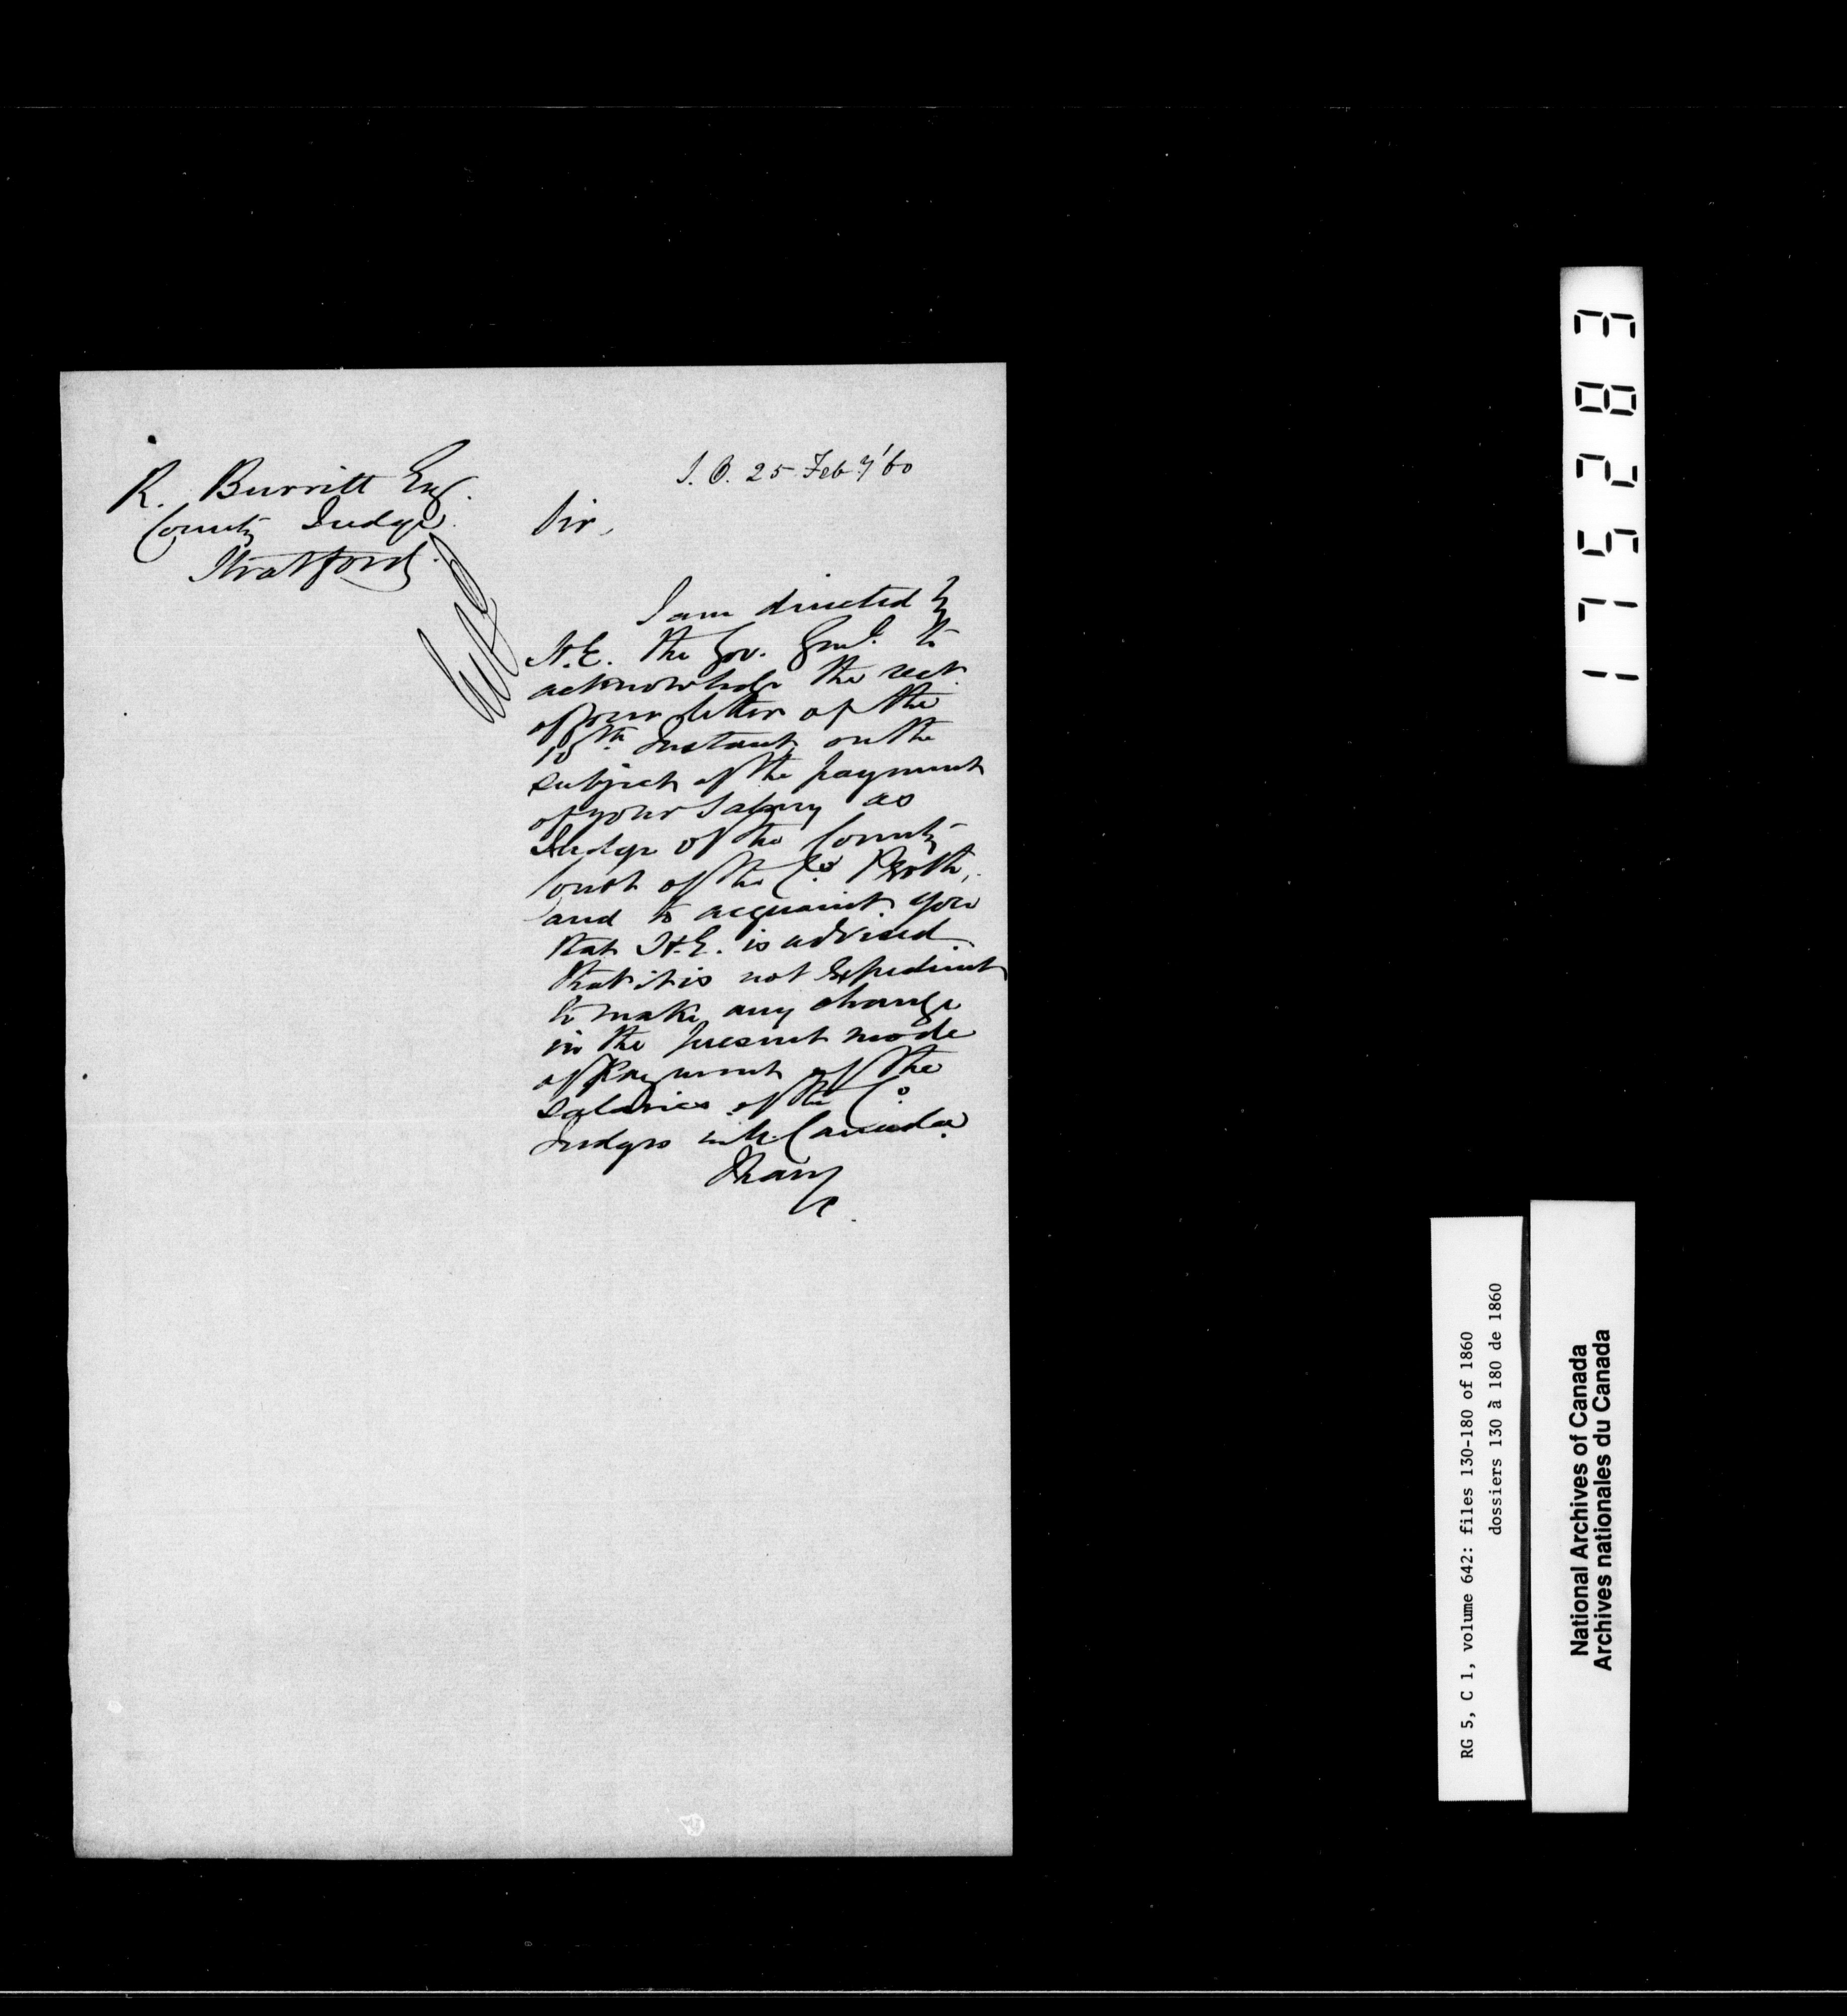 S. O. 25 Feby '60
R. Burritt Esq.
County Judge.
Stratford.
Sir,
I am directed by
H.E. the Gov. Genl. to
acknowledge the rect.
of your letter of the
18th Instant, on the
subject of the payment
of your Salary as
Judge of the County
Court of the Co. Perth,
and to acquaint you
that H.E. is advised
that it is not Expedient
to make any change
in the present mode
of Payment of the
salaries of the Co.
Judges in U. Canada.
I have
&c.
175283
RG 5, C 1, volume 642: files 130-180 of 1860
dossiers 130 à 180 de 1860
National Archives of Canada
Archives nationales du Canada